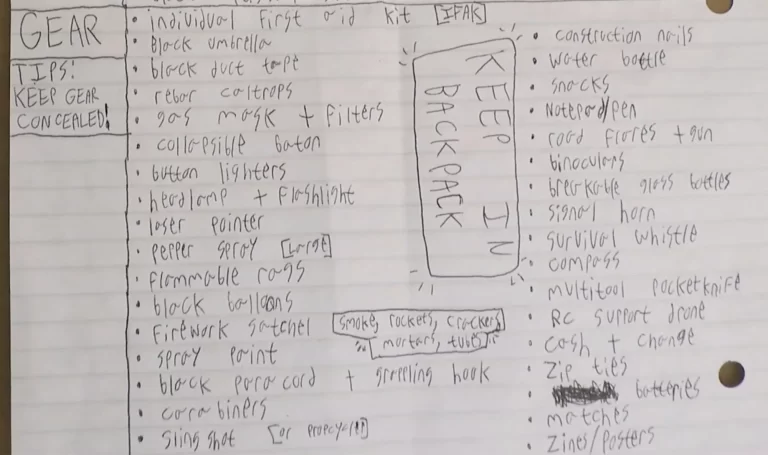 GEAR
TIPS:
KEEP GEAR
CONCEALED!
• individual first aid kit [IFAK]
• Black umbrella
• black duct tape
• rebar caltrops
• gas mask + filters
• collapsible baton
• button lighters
• headlamp + flashlight
• laser pointer
• pepper spray [Large]
• flammable rags
• black balloons
• firework satchel [smoke, rockets, crackers, mortars, tubes]
• spray paint
• black paracord + grappling hook
• carabiners
• slingshot [or
KEEP IN
BACKPACK
• construction nails
• water bottle
• snacks
• Notepad/pen
• road flares + gun
• binoculars
• breakable glass bottles
• signal horn
• survival whistle
• compass
• multitool pocketknife
• RC support drone
• cash + change
• Zip ties
• batteries
• matches
• Zines/Posters